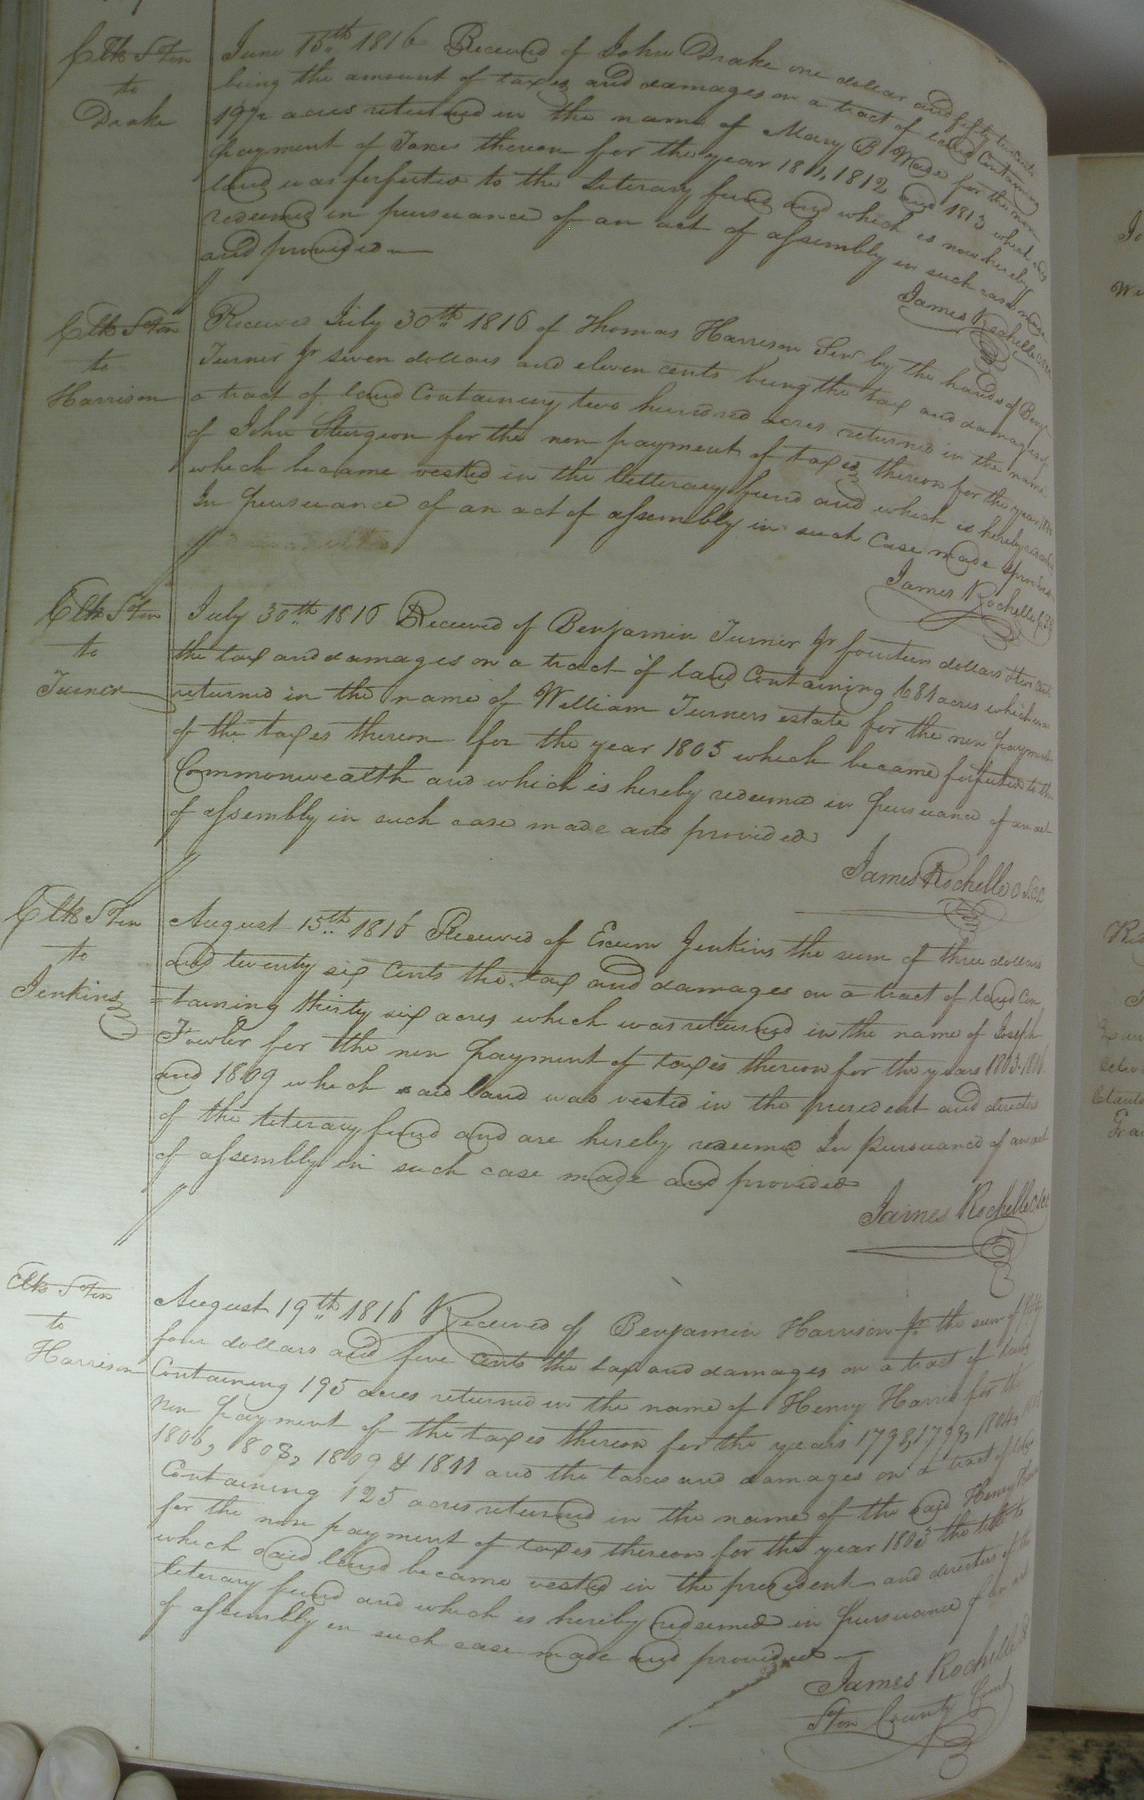 Clk S Ton
to
Drake
June 13th 1816 Received of John Drake one dollar and fifty
being the amount of taxes and damages on a tract of land Containing
197½ acres returned in the name of Mary B Wade for the non
payment of Taxes thereon for the year 1811, 1812 and 1813 which
land was forfeited to the Literary fund and which is now hereby
redeemed in pursuance of an act of assembly in such case made
and provided
James Rochelle
Clk S Ton
to
Harrison
Received July 30th 1816 of Thomas Harrison Senr by the hands of Benj
Turner Jr seven dollars and eleven cents being the tax and damages of
a tract of land Containing two hundred acres returned in the name
of John Sturgeon for the non payment of taxes thereon for the year
which became vested in the litterary fund and which is hereby
In pursuance of an act of assembly in such Case made & provided
James Rochelle
Clk S Ton
to
Turner
July 30th 1816 Received of Benjamin Turner Jr fourteen dollars & ten cents
the tax and damages on a tract of land Containing 681 acres which was
returned in the name of William Turners estate for the non payment
of the taxes thereon for the year 1805 which became forfeited to the
Commonwealth and which is hereby redeemed in pursuance of an act
of assembly in such case made and provided
James Rochelle
Clk S Ton
to
Jenkins
August 15th 1816 Received of Exum Jenkins the sum of three dollars
and twenty six Cents the tax and damages on a tract of land Con
=taining thirty six acres which was returned in the name of Joseph
Fowler for the non payment of taxes thereon for the years 1803
and 1809 which said land was vested in the president and directors
of the literary fund and are hereby redeemed In pursuance of an act
of assembly in such case made and provided
James Rochelle
Clk S Ton
to
Harrison
August 19th 1816 Received of Benjamin Harrison Jr the sum of
four dollars and five cents the tax and damages on a tract of land
Containing 195 acres returned in the name of Henry Harris for the
Non payment of the taxes thereon for the years 1798, 1799, 1804,
1806, 1808, 1809 & 1811 and the taxes and damages on a tract of
Containing 125 acres returned in the name of the said Henry
for the non payment of taxes thereon for the year 1803 the title to
which said land became vested in the president and directors of the
literary fund and which is hereby redeemed in pursuance of an act
of assembly in such case made and provided
James Rochelle
S Ton County Court